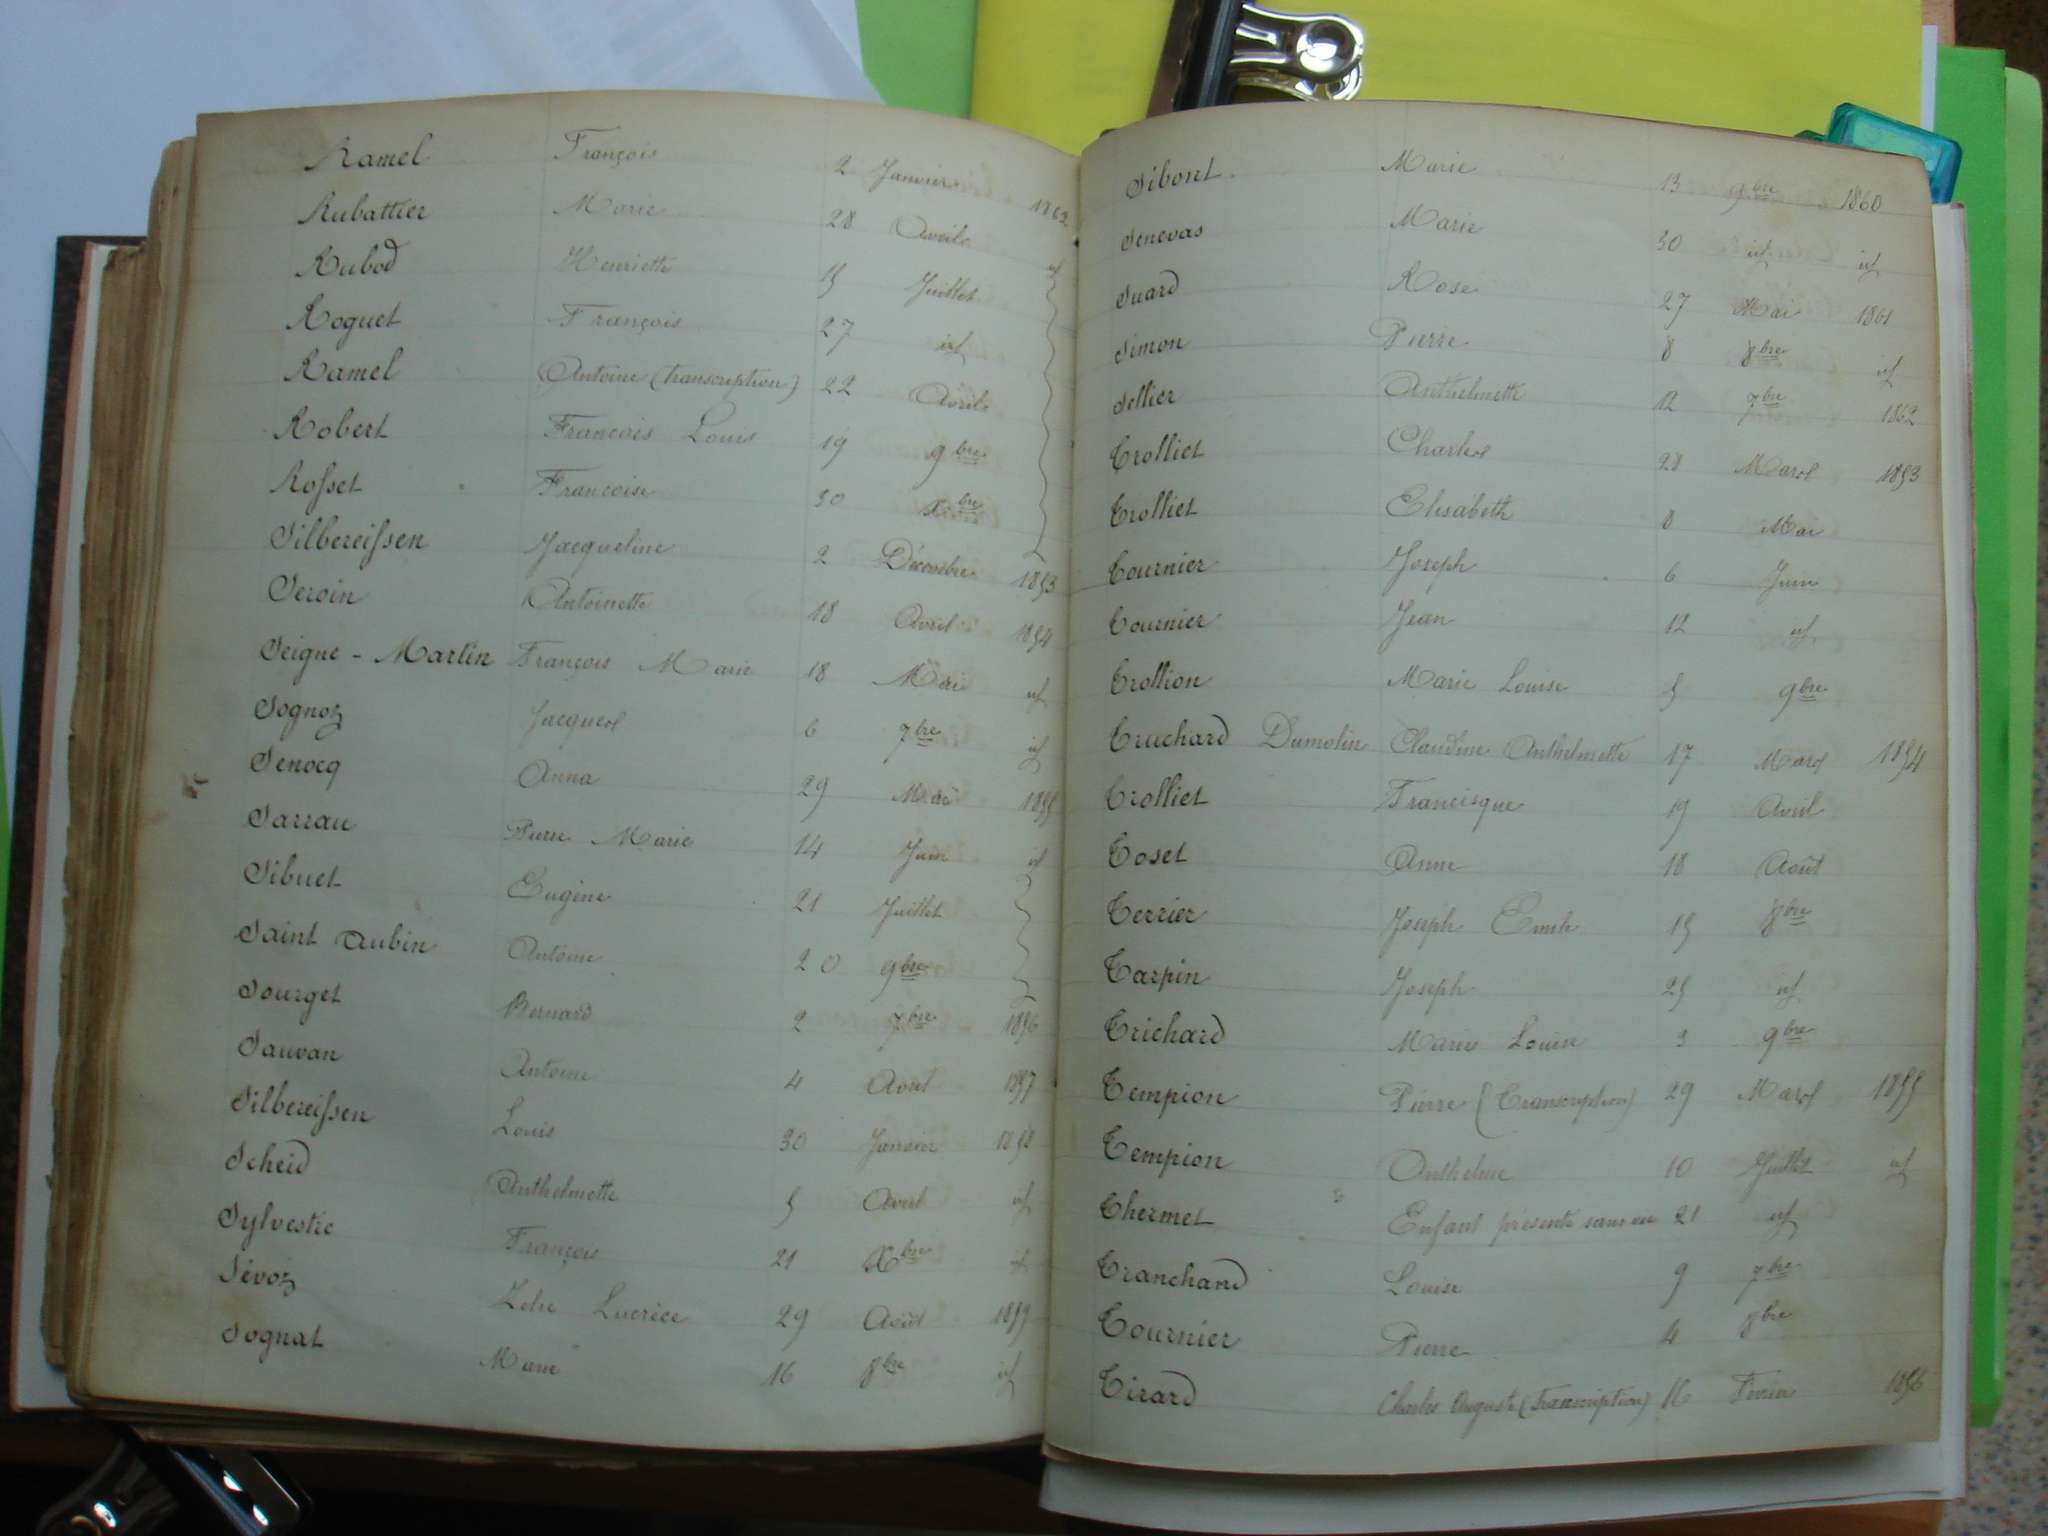 Ramel François 2 Janvier 1862
Rubattier Marie 28 Avril id
Rubod Henriette 15 Juillet
Roguet François 27 id
Ramel Antoine (transcription) 22 Avril
Robert François Louis 19 9bre
Rosset Françoise 30 Xbre
Silbereissen Jacqueline 2 Décembre 1853
Seroin Antoinette 18 Avril 1854
Seigne - Martin François Marie 18 Mai id
Sognoz Jacques 6 7bre id
Senocq Anna 29 Mai 1855
Sarrau Pierre Marie 14 Juin id
Sibuet Eugène 21 Juillet
Saint Aubin Antoine 20 9bre
Sourget Bernard 2 7bre 1856
Sauvan Antoine 4 1857
Silbereissen Louis 30 Janvier 1858
Scheid Anthelmette 5 Avril id
Sylvestre François 21 Xbre id
Sévoz Lucrèce 29 Août 1859
Sognat Marie 16 8bre id
Sibout Marie 13 9bre 1860
Senevas Marie 30 id id
Suard Rose 27 Mai 1861
Simon Pierre 8 8bre id
Sellier Anthelmette 12 7bre 1862
Trolliet Charles 28 Mars 1853
Trolliet Elisabeth 8 Mai
Tournier Joseph 6 Juin
Tournier Jean 12 id
Trollion Marie Louise 5 9bre
Truchard Dumolin Claudine Anthelmette 17 Mars 1854
Trolliet Francisque 19 Avril
Toset Anne 18 Août
Terrier Joseph Emile 15 8bre
Tarpin Joseph 25 id
Trichard Marie Louise 3 9bre
Tempion Pierre (Transcription) 29 Mars 1855
Tempion Anthelme 10 Juillet id
Thermet Enfant présenté sans vie 21 id
Tranchand Louise 9 7bre
Tournier Pierre 4 8bre
Tirard Charles Auguste (transcription) 16 Février 1856